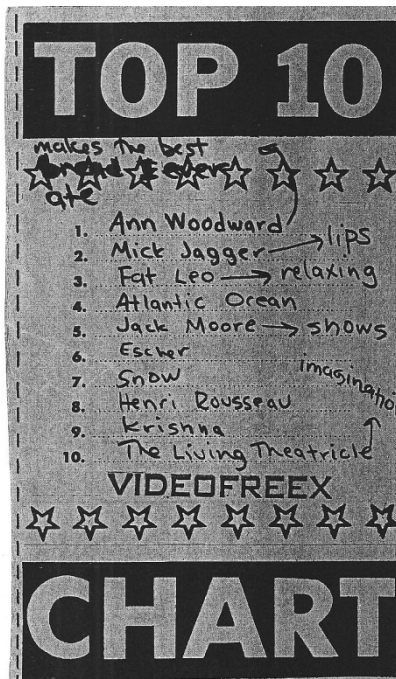 TOP 10
makes the best
bread I ever
ate
1. Ann Woodward
2. Mick Jagger → lips
3. Fat Leo → relaxing
4. Atlantic Ocean
5. Jack Moore → shows
6. Escher
7. Snow
imagination
8. Henri Rousseau
9. Krishna
10. The Living Theatricle
VIDEOFREEX
CHART